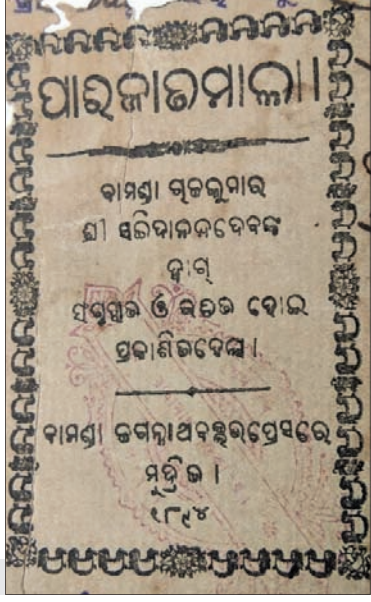 ପାରିଜାତମାଳା।
ବାମଣ୍ଡା ରାଜକୁମାର
ଶ୍ରୀ ସଚ୍ଚିଦାନନ୍ଦଦେବଙ୍କ
ଦ୍ୱାରା
ସଂଗୃହୀତ ଓ ରଚିତ ହୋଇ
ପ୍ରକାଶିତହେଲା।
ବାମଣ୍ଡା ଜଗନ୍ନାଥବଲ୍ଲଭପ୍ରେସରେ
ମୁଦ୍ରିତ।
୧୮୯୪